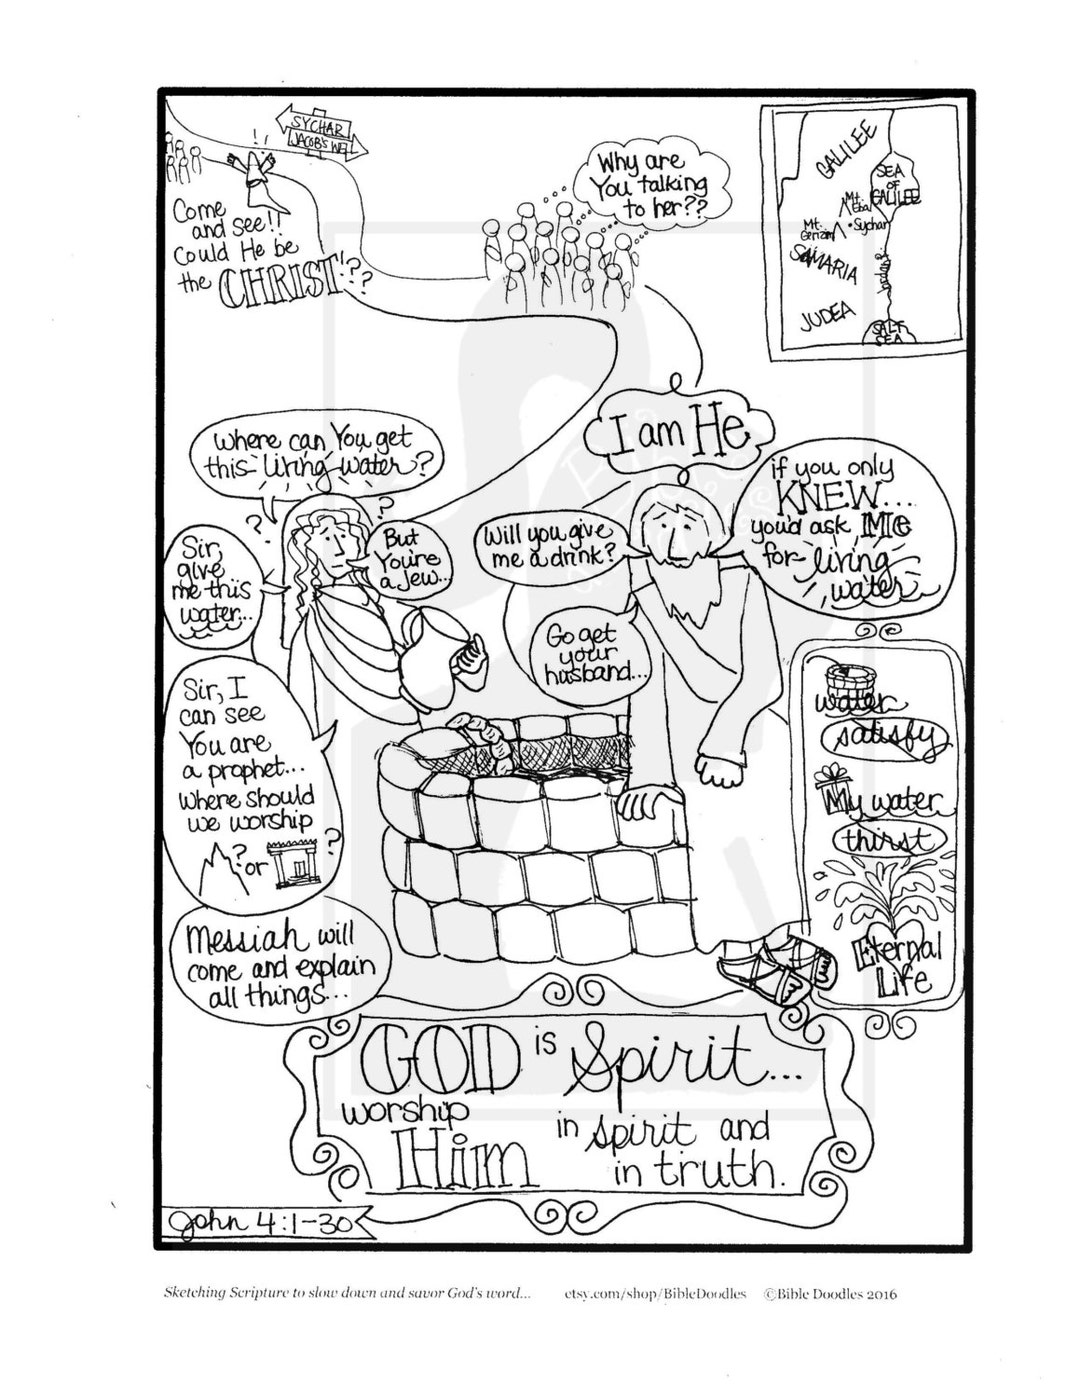 SYCHAR
JACOB'S WELL
!!
Come
and see!!
Could He be
the CHRIST!???
Why are
You talking
to her??
GALILEE
SEA
OF
GALILEE
Mt.
Ebal
Mt.
Gerizim
•Sychar
SAMARIA
Jordan R.
JUDEA
SALT
SEA
I am He
Where can You get
this living water?
?
?
But
You're
a Jew...
Sir,
give
me this
water...
Will you give
me a drink?
if you only
KNEW...
you'd ask Me
for living
water
Go get
your
husband...
Sir, I
can see
You are
a prophet...
where should
we worship
? or ?
Messiah will
come and explain
all things...
water
satisfy
My water
thirst
Eternal
Life
GOD is Spirit...
worship
Him
in spirit and
in truth.
John 4:1-30
Sketching Scripture to slow down and savor God's word... etsy.com/shop/BibleDoodles ©Bible Doodles 2016